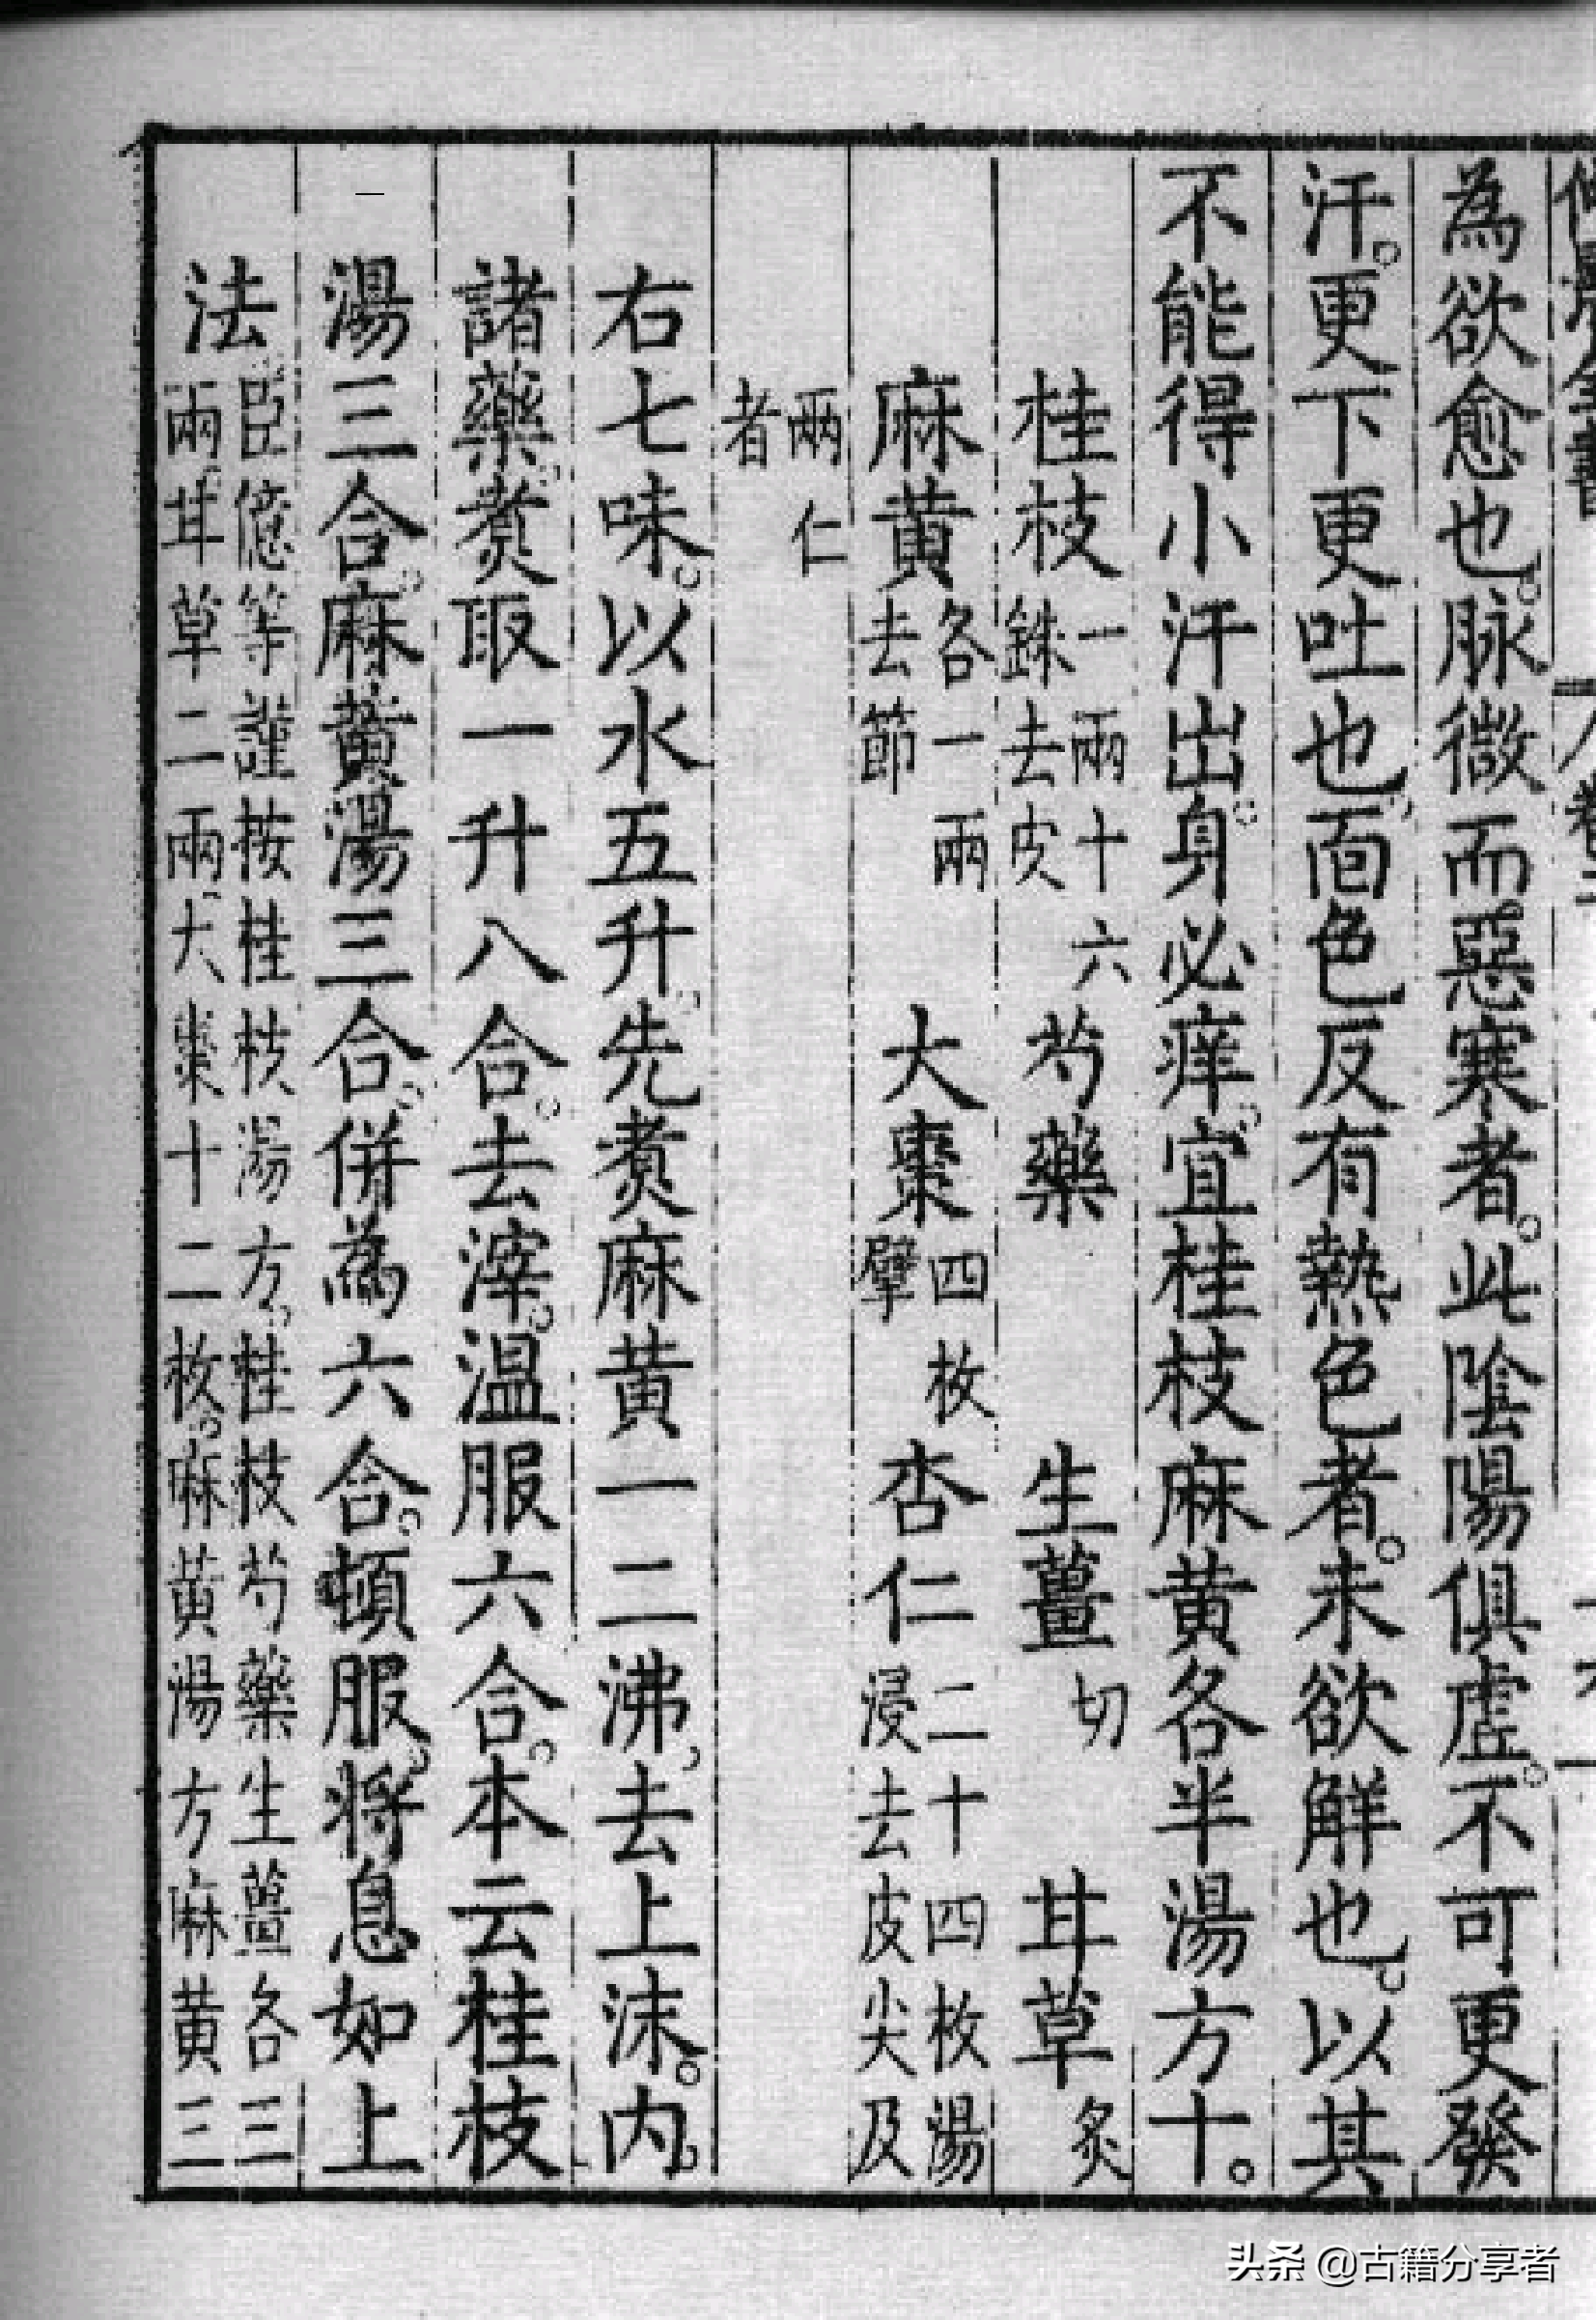 為欲愈也。脉微而惡寒者。此陰陽俱虛。不可更發
汗。更下更吐也。面色反有熱色者。未欲解也。以其
不能得小汗出。身必痒。宜桂枝麻黃各半湯方十。
桂枝一兩十六銖去皮 芍藥 生薑切 甘草炙
麻黃各一兩去節 大棗四枚擘 杏仁二十四枚湯浸去皮尖及
兩仁者
右七味。以水五升。先煮麻黃一二沸。去上沫。內
諸藥。煮取一升八合。去滓。温服六合。本云桂枝
湯三合。麻黃湯三合。併為六合。頓服。將息如上
法臣億等謹按桂枝湯方。桂枝芍藥生薑各三
兩。甘草二兩。大棗十二枚。麻黃湯方麻黃三
头条 @古籍分享者